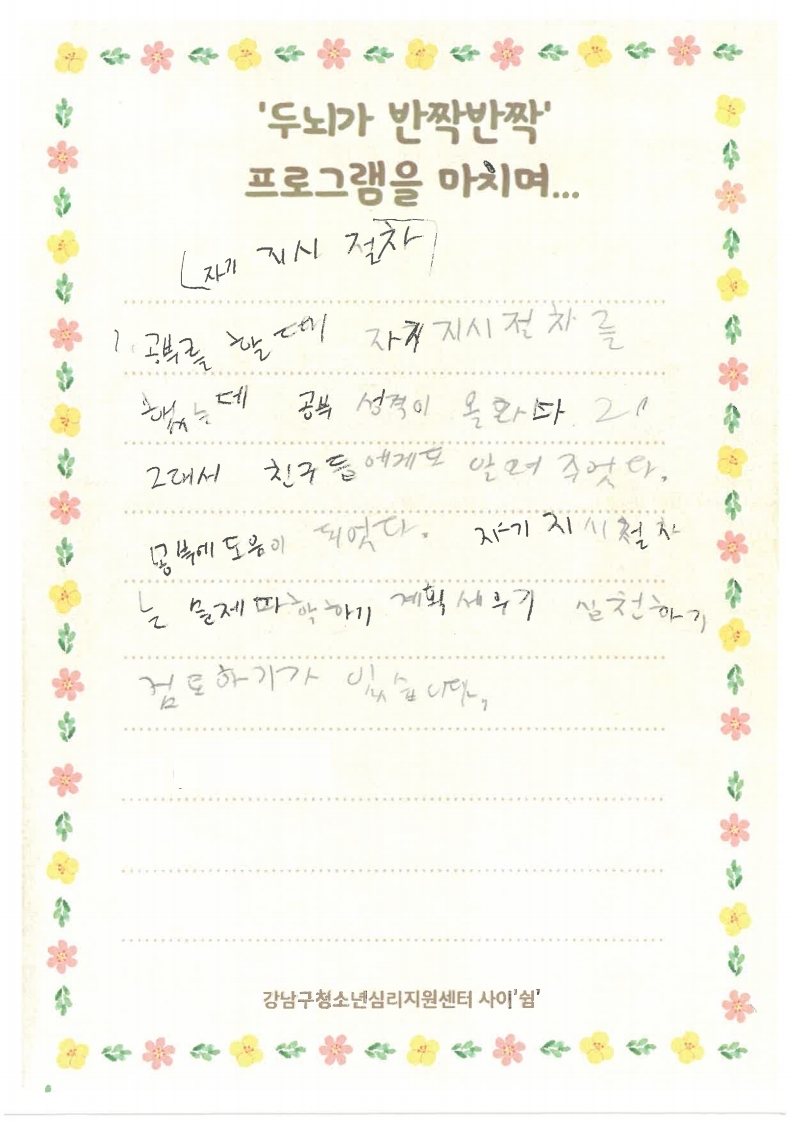 '두뇌가 반짝반짝'
프로그램을 마치며...
[자기 지시 절차]
1. 공부를 할 때 자기 지시 절차를
했는데 공부 성적이 올
그래서 친구들에게도 알려 주었다.
공부에 도움이 되었다. 자기 지시 절차
는 문제 파악하기 계획 세우기 실천하기
점토하기가 있습니다,
강남구청소년심리지원센터 사이'쉼'